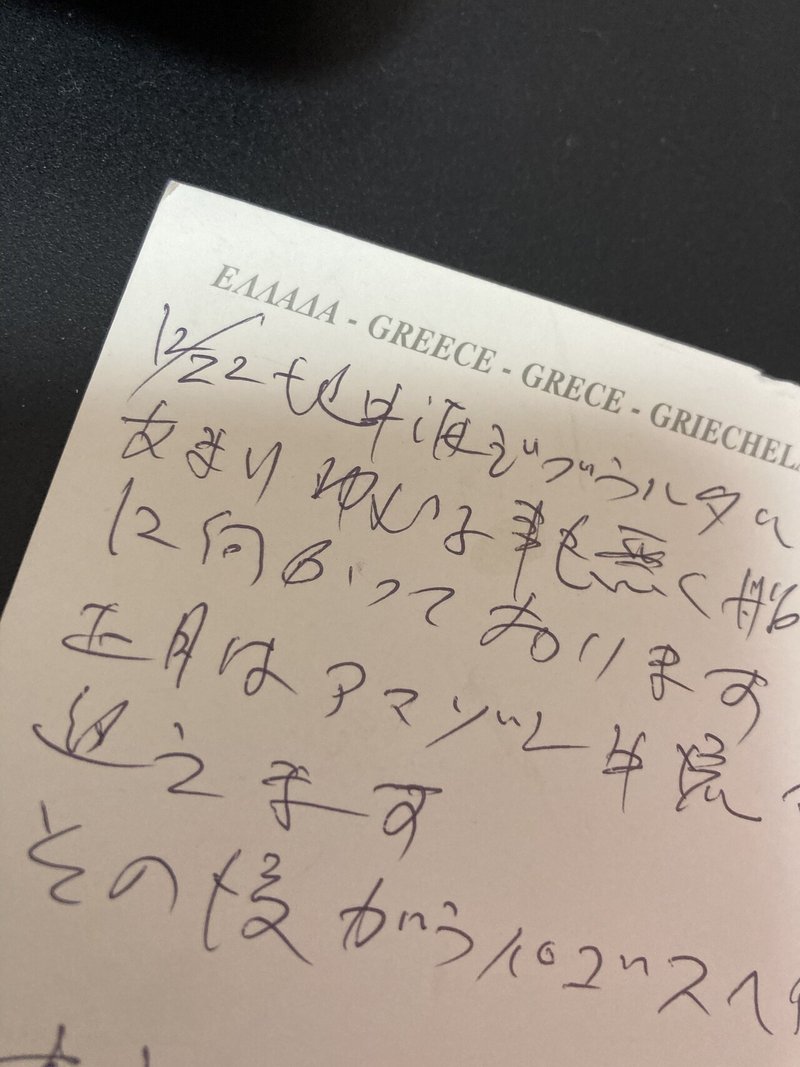 ΕΛΛΑΔΑ - GREECE - GRECE - GRIECHELA
12/22 地中海ジブラルタル
あまりゆれる事も無く
に向かっております
正月はアマゾン
迎えます
その後ガラパゴスへ